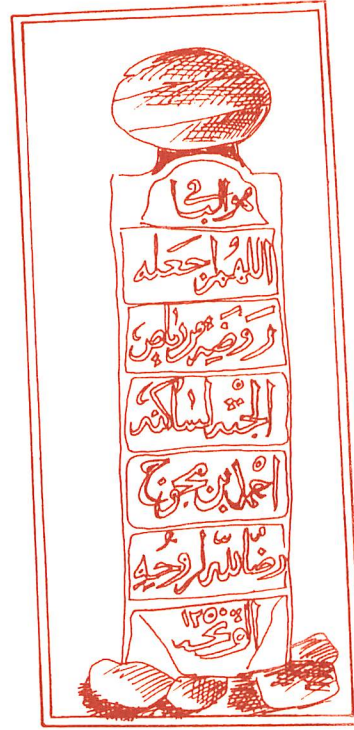 هو الباقي
اللهم اجعله
روضة من رياض
الجنة لساكنه
احمد بن
رضاء لله لروحيه
الفاتحه
١٢٥٠